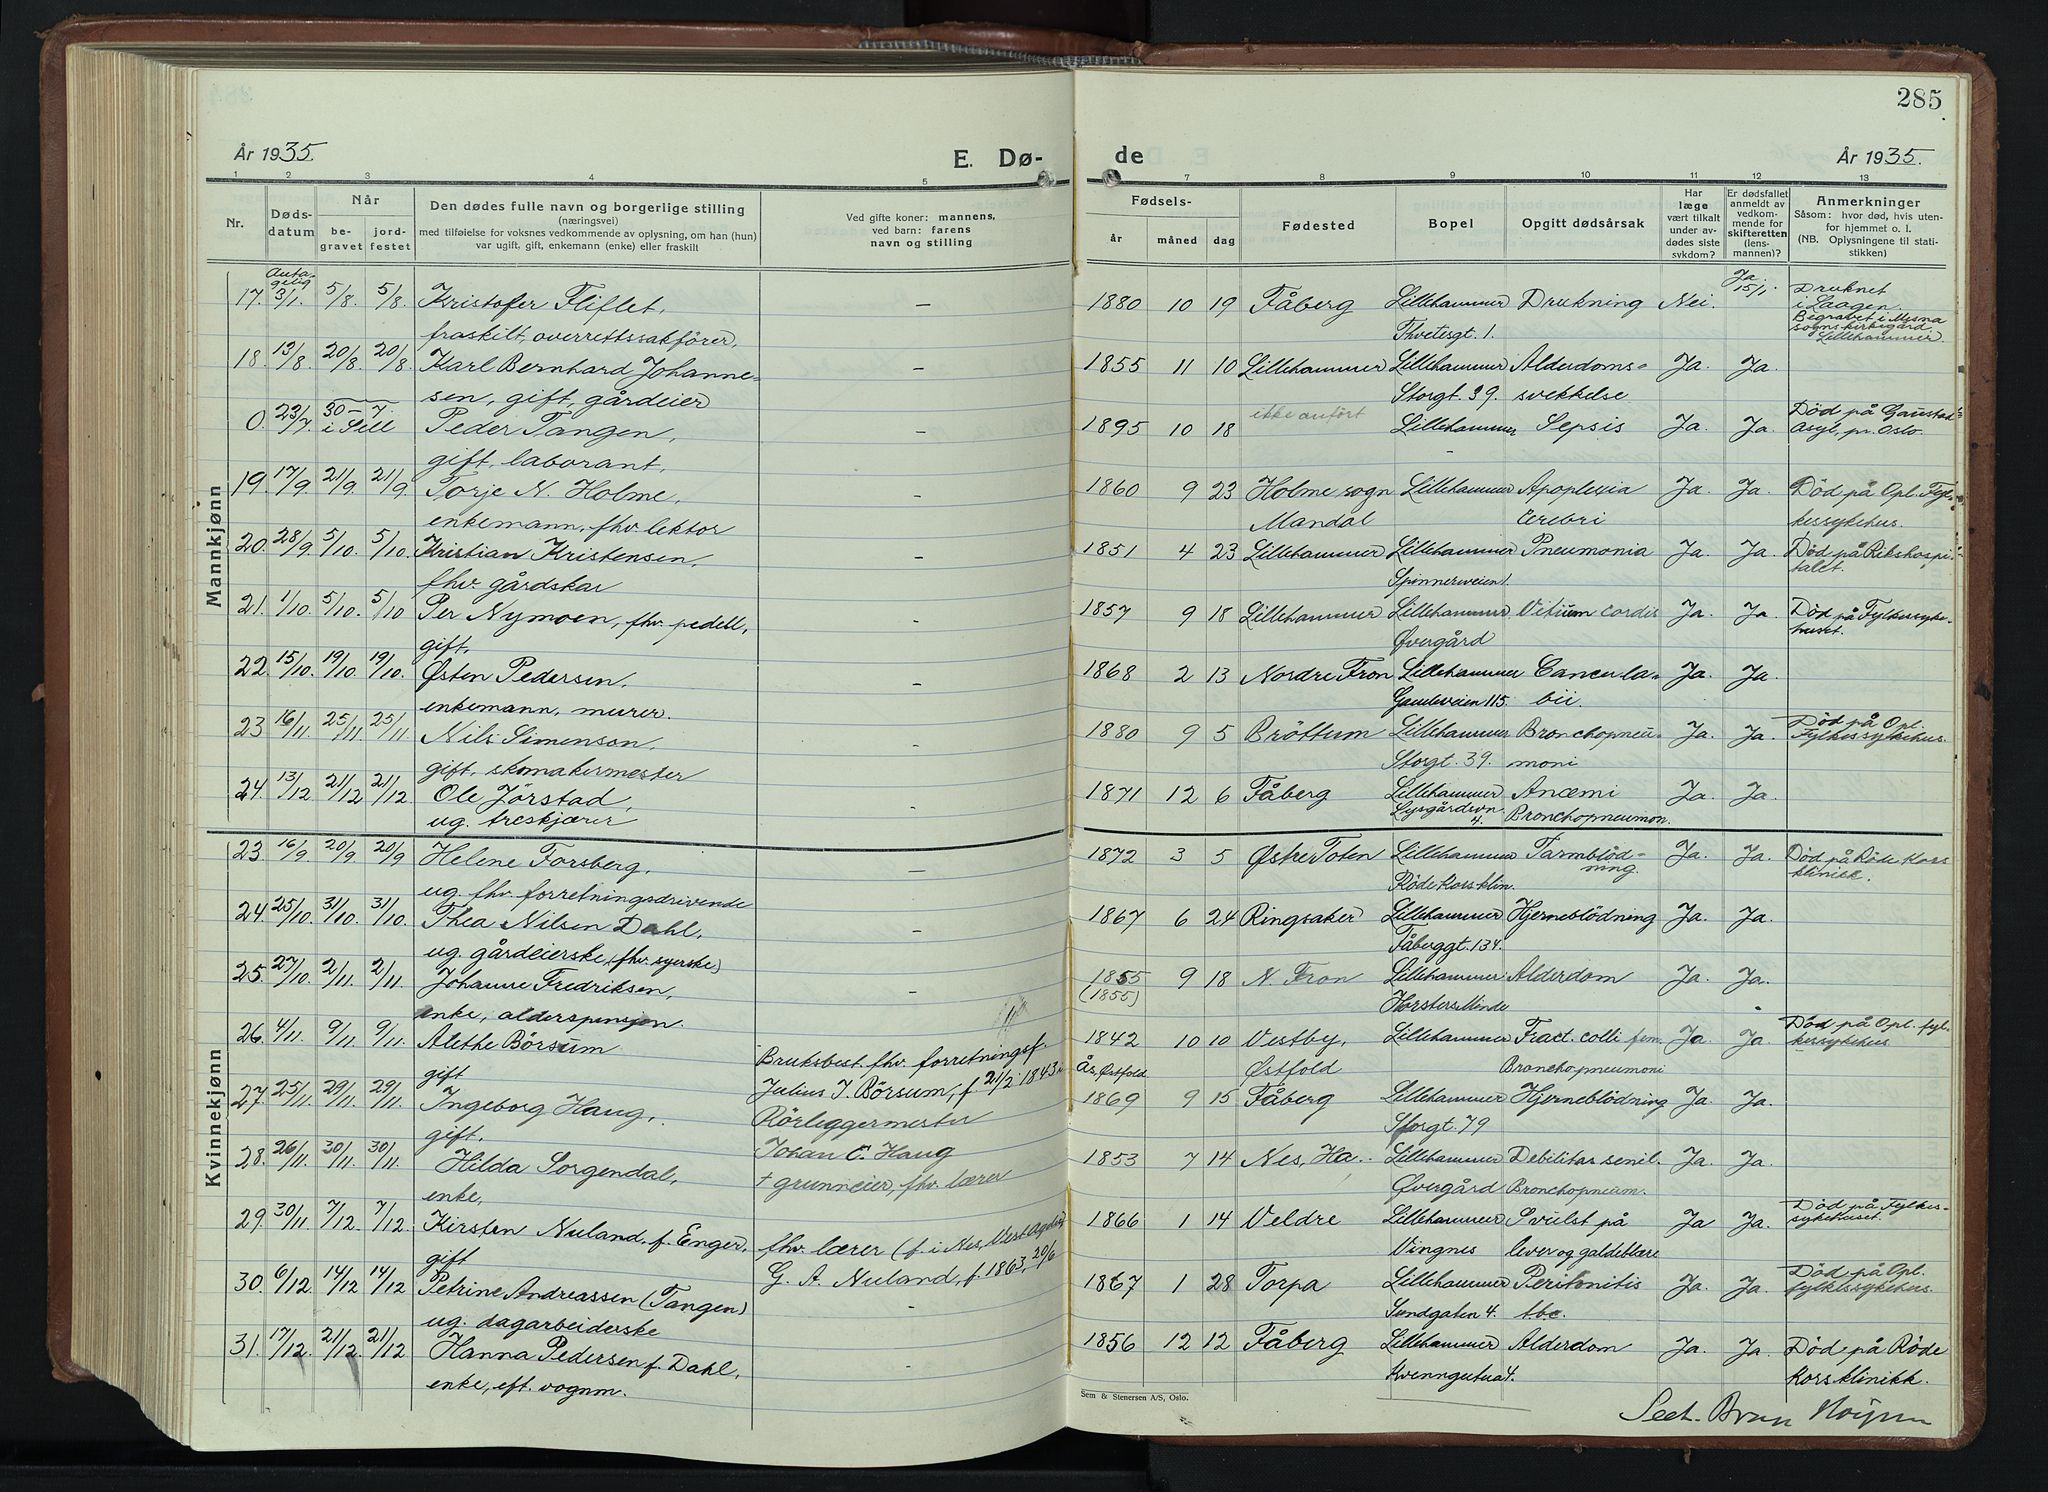 285
År 1935.
E. Dø-
de
År 1935.
1 2 3 4 5 7 8 9 10 11 12 13
Nr.
Døds-
datum
Når
be-
gravet
jord-
festet
Den dødes fulle navn og borgerlige stilling
(næringsvei)
med tilføielse for voksnes vedkommende av oplysning, om han (hun)
var ugift, gift, enkemann (enke) eller fraskilt
Ved gifte koner: mannens,
ved barn: farens
navn og stilling
Fødsels-
år måned dag
Fødested
Bopel
Opgitt dødsårsak
Har
læge
vært tilkalt
under av-
dødes siste
sykdom?
Er dødsfallet
anmeldt av
vedkom-
mende for
skifteretten
(lens-
mannen)?
Anmerkninger
Såsom: hvor død, hvis uten-
for hjemmet o. l.
(NB. Oplysningene til stati-
stikken)
Mannkjønn
Anta-
gelig
17. 3/1. 5/8. 5/8. Kristofer Fliflet, - 1880 10 19 Fåberg Lillehammer Drukning Nei. Ja 15/1. Druknet
i Laagen.
fraskilt, overrettssakfører. Thvetesgt. 1. Begravet i Mesna
sognskirkegård,
Lillehammer.
18. 13/8. 20/8. 20/8. Karl Bernhard Johanne- - 1855 11 10 Lillehammer Lillehammer Alderdoms- Ja. Ja.
sen, gift, gårdeier Storgt. 39. svekkelse
0. 23/7. 30-7. i Still Peder Tangen, - 1895 10 18 ikke anført Lillehammer Sepsis Ja. Ja. Død på Gaustad
Asyl, pr. Oslo.
gift, laborant.
19. 17/9. 21/9. 21/9. Torje N. Holme, - 1860 9 23 Holme sogn Lillehammer Apoplexia Ja. Ja. Død på Opl. Fyl-
enkemann, fhv. lektor Mandal cerebri kessykehus.
20. 28/9. 5/10. 5/10. Kristian Kristensen, - 1851 4 23 Lillehammer Lillehammer Pneumonia Ja. Ja. Død på Rikshospi-
talet.
fhv. gårdskar Spinnerveien 1.
21. 1/10. 5/10. 5/10 Per Nymoen, fhv. pedell, - 1857 9 18 Lillehammer Lillehammer Vitium cordis Ja. Ja. Død på Fylkessyke-
huset.
gift. Øvergård
22. 15/10. 19/10. 19/10. Østen Pedersen. - 1868 2 13 Nordre Fron Lillehammer Cancer la- Ja. Ja.
enkemann, murer. Gamleveien 115. bii.
23 16/11. 25/11. 25/11. Nils Simenson. - 1880 9 5 Brøttum Lillehammer Bronchopneu- Ja. Ja. Død på Opl.
Fylkessykehus.
gift, skomakermester Storgt. 39. moni
24. 13/12 21/12 21/12. Ole Jørstad, - 1871 12 6 Fåberg Lillehammer Anæmi Ja. Ja.
ug. treskjærer Lysgårdsvn 4. Bronchopneumon.
Kvinnekjønn
23. 16/9. 20/9. 20/9 Helene Forsberg, - 1872 3 5 Østre Toten Lillehammer Tarmblød- Ja. Ja. Død på Røde Kors
klinikk.
ug. fhv. forretningsdrivende Røde Kors klin. ning.
24. 25/10. 31/10. 31/10. Thea Nilsen Dahl. - 1867 6 24 Ringsaker Lillehammer Hjerneblødning Ja. Ja.
ug. gårdeierske, (fhv. syerske) Fåberggt. 134.
25. 27/10. 2/11. 2/11 Johanne Fredriksen, - 1855 9 18 N. Fron Lillehammer Alderdom Ja. Ja.
(1855)
enke, alderspensjon. Horsters Minde
26. 4/11. 9/11. 9/11. Alethe Børsum Bruksbest. fhv. forretningsf. 1842 10 10 Vestby, Lillehammer Fract. colli fem. Ja Ja. Død på Opl. fyl-
kessykehus
gift Julius I. Børsum, f. 21/2. 1843 Ås, Østfold Østfold Bronchopneumoni
27. 25/11. 29/11. 29/11. Ingeborg Haug, Rørleggermester 1869 9 15 Fåberg Lillehammer Hjerneblødning Ja. Ja.
gift. Johan C. Haug Storgt. 79
28. 26/11. 30/11. 30/11. Hilda Sorgendal, + grunneier, fhv. lærer 1853 7 14 Nes, He. Lillehammer Debilitas senil. Ja. Ja.
enke, Øvergård Bronchopneum.
29. 30/11. 7/12. 7/12. Kirsten Nuland f. Enger, fhv. lærer (f. i Nes, Vest Agder) 1866 1 14 Veldre Lillehammer Svulst på Ja Ja. Død på Fylkes-
sykehuset.
gift G. A. Nuland, f. 1863, 20/6 Vingnes lever og galdeblære
30. 6/12. 14/12 14/12 Petrine Andreassen (Tangen) - 1867 1 28 Torpa Lillehammer Peritonitis Ja. Ja. Død på Opl.
fylkessykehus.
ug. dagarbeiderske Sundgaten 4. tbc.
31. 17/12. 21/12. 21/12 Hanna Pedersen f. Dahl, - 1856 12 12 Fåberg Lillehammer Alderdom Ja. Ja. Død på Røde
enke, eft. vognm. Kors klinikk.
Sem & Stenersen A/S, Oslo.